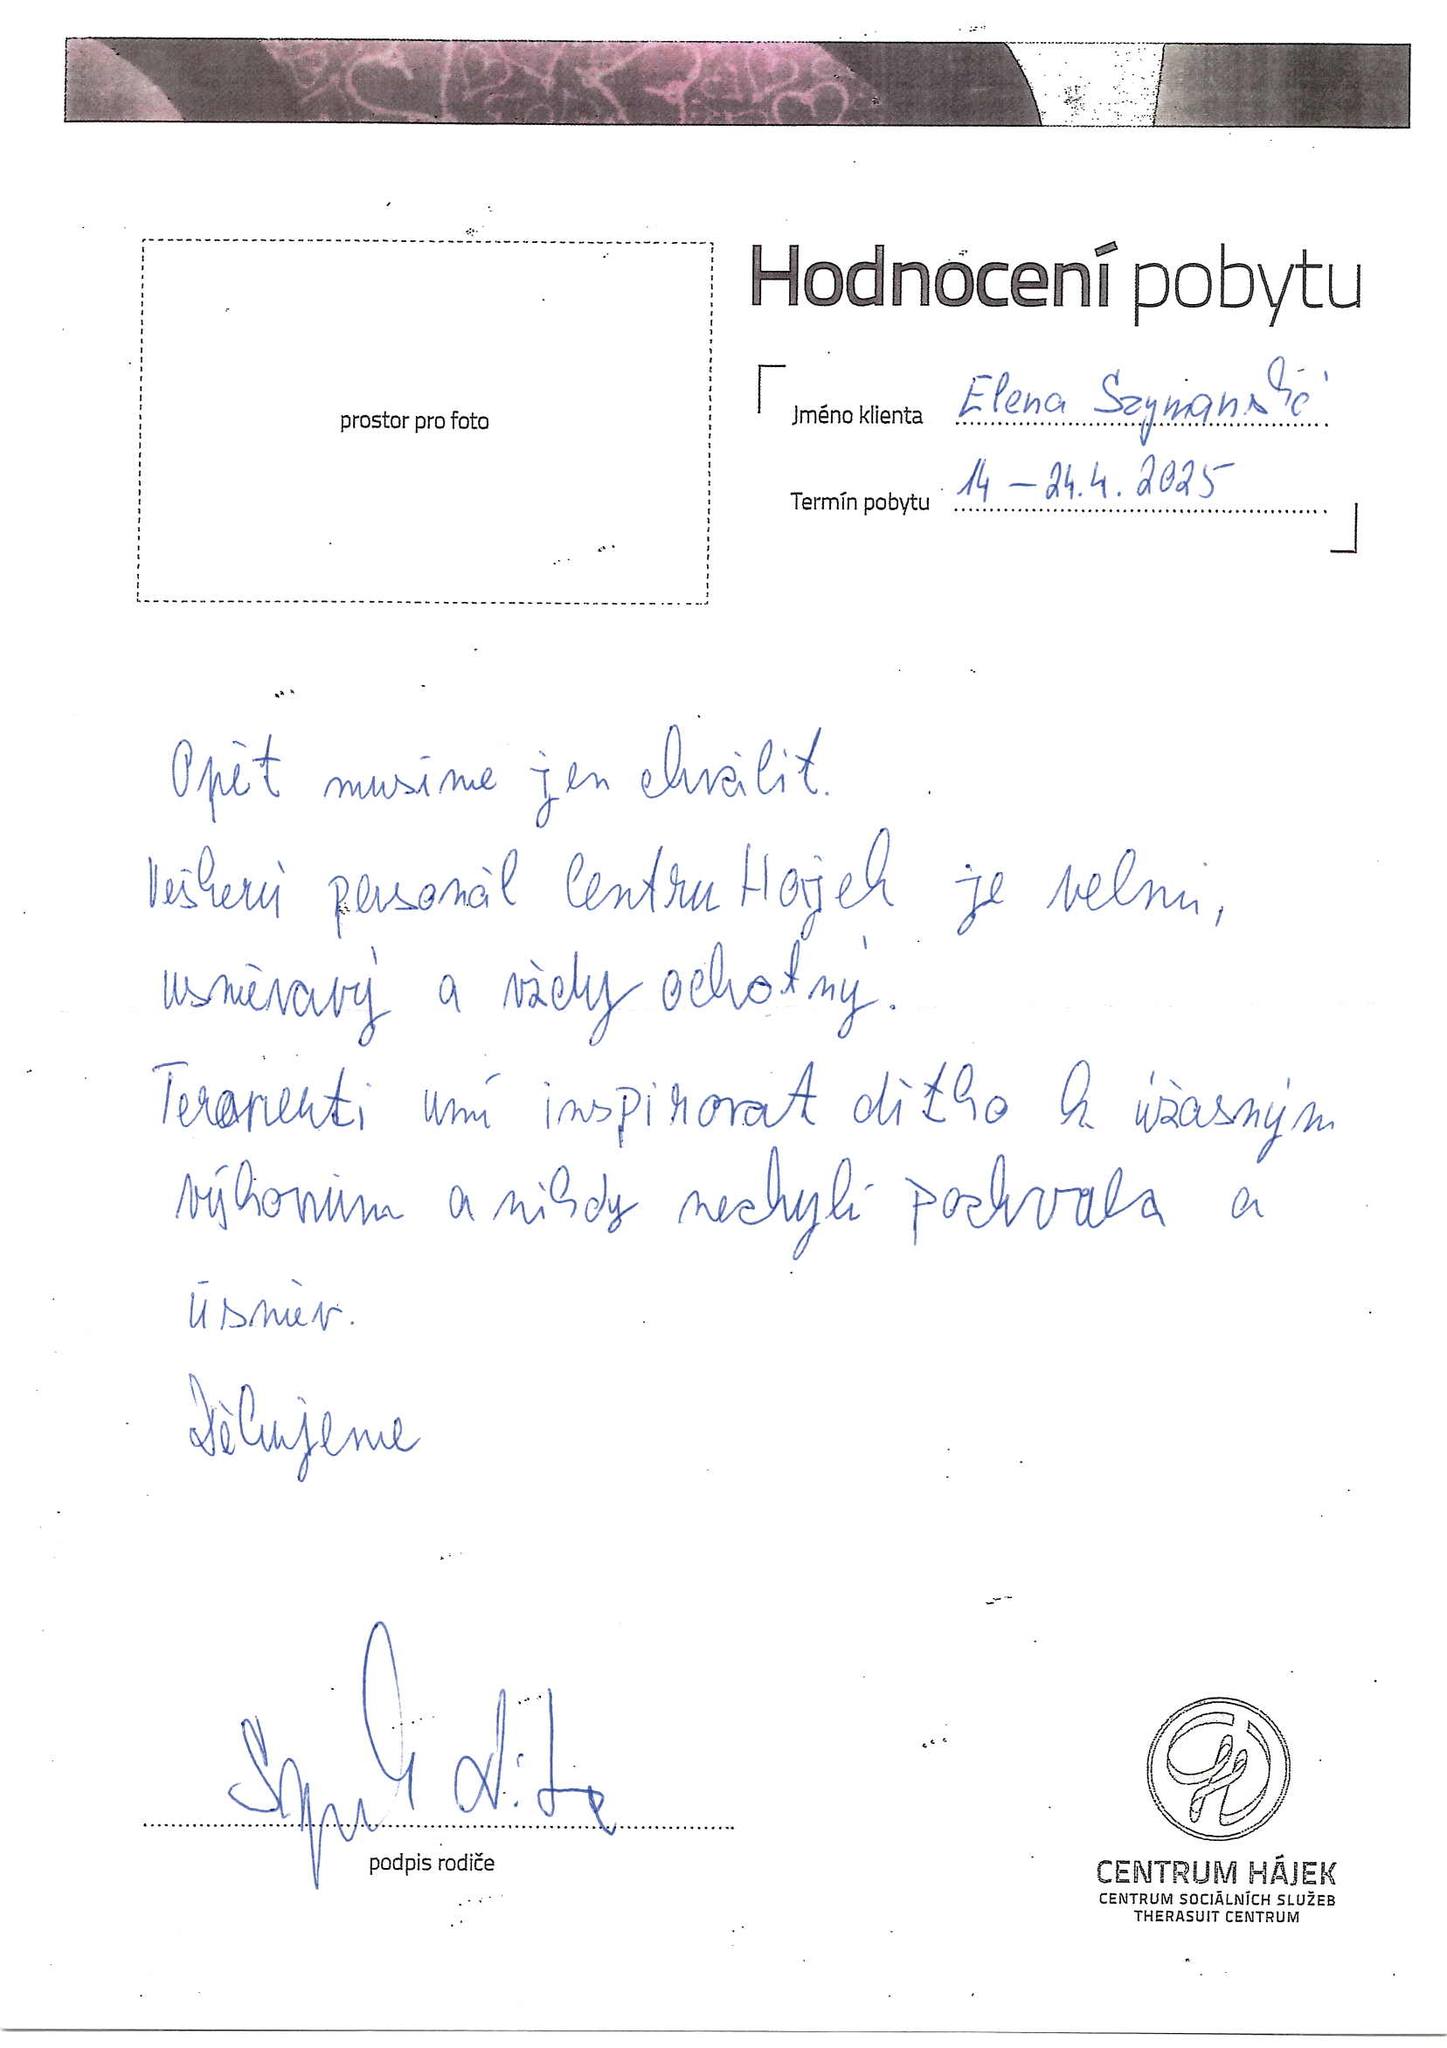 Hodnocení pobytu
prostor pro foto
Jméno klienta Elena Szymanská
Termín pobytu 14 – 24.4. 2025
Opět musíme jen chválit.
Veškerý personál Centru Hájek je velmi,
usměvavý a vždy ochotný.
Terapeuti umí inspirovat dítko k úžasným
výkonům a nikdy nechybí pochvala a
úsměv.
Děkujeme
podpis rodiče
CENTRUM HÁJEK
CENTRUM SOCIÁLNÍCH SLUŽEB
THERASUIT CENTRUM